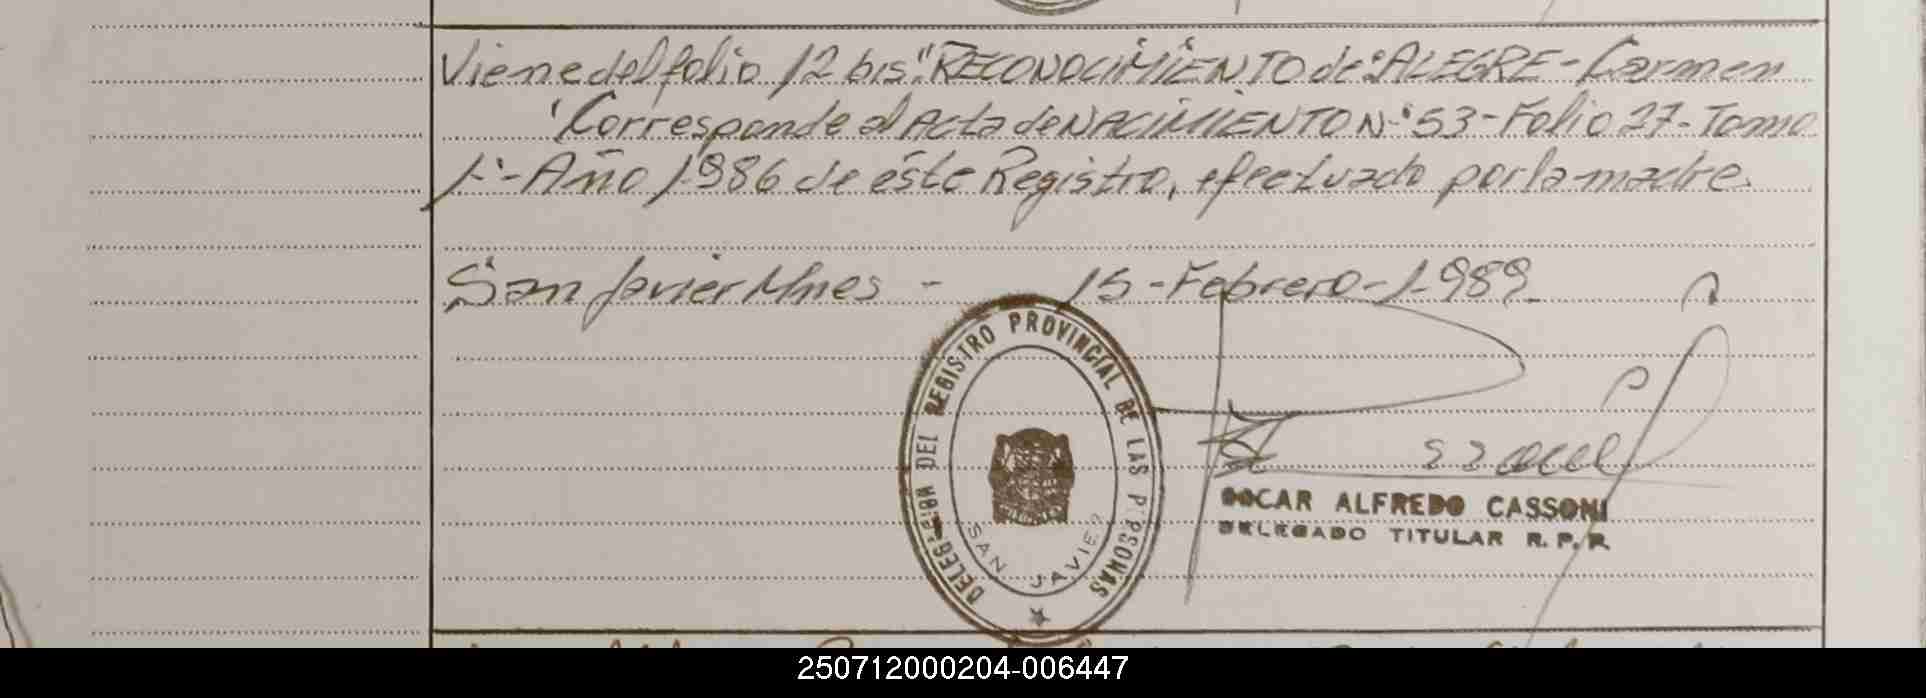 Viene del folio 12 bis "RECONOCIMIENTO de: ALEGRE - Carmen
"Corresponde al Acta de NACIMIENTO Nº 53 - Folio 27 - Tomo
1º - Año 1986 de éste Registro, efectuado por la madre
San Javier Mnes - 15 - Febrero - 1989
DELEGACION DEL REGISTRO PROVINCIAL DE LAS PERSONAS
SAN JAVIER
OSCAR ALFREDO CASSONI
DELEGADO TITULAR R.P.P.
250712000204-006447